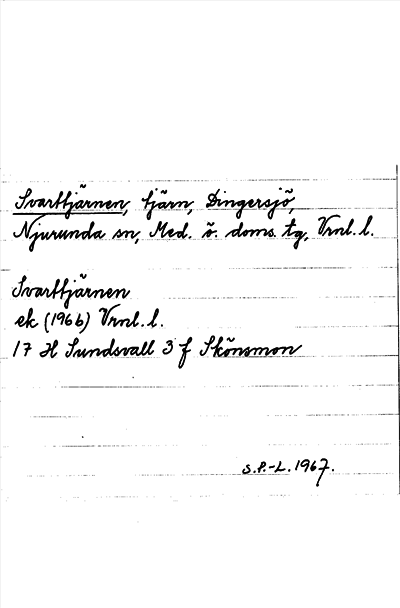 Svarttjärnen, tjärn, Dingersjö,
Njurunda sn, Med. ö. doms. tg, Vrnl. l.
Svarttjärnen
ek (1966) Vrnl. l.
17 H Sundsvall 3 f Skönsmon
S.P.-L. 1967.